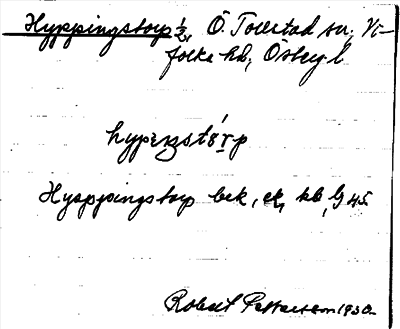 Hyppingstorp ½, Ö. Tollstad sn, Vi-
folka hd, Östergl
hypeŋstörp
Hyppingstorp bek, ek, kb, lj 45
Robert Pettersson 1930